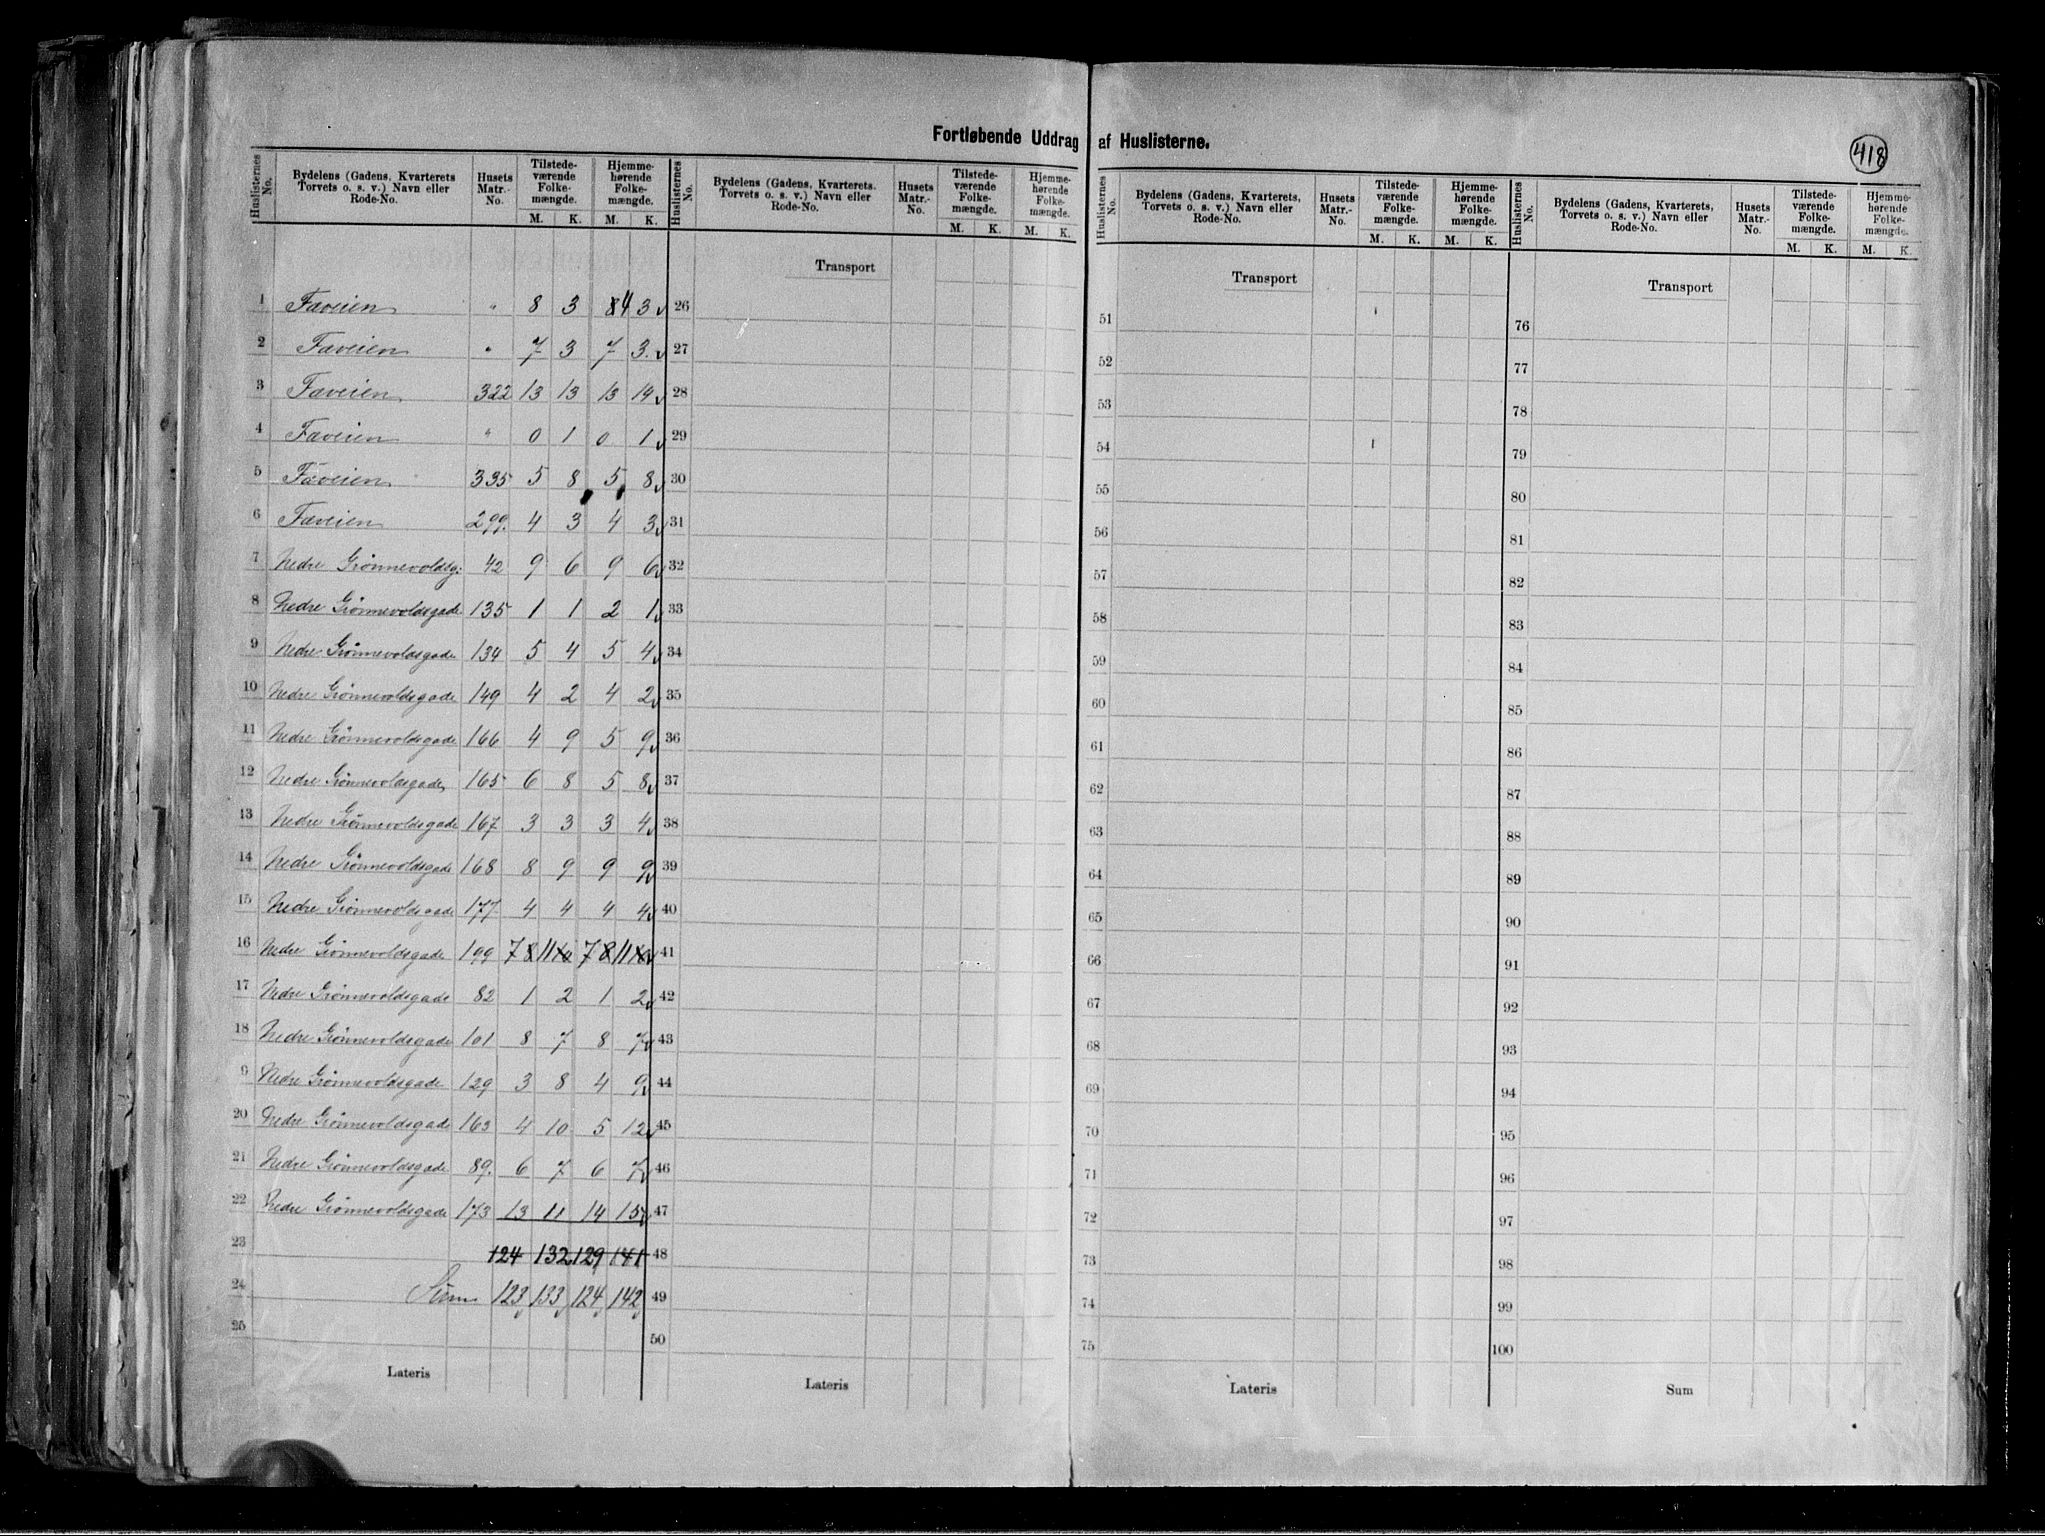 Fortløbende Uddrag af Huslisterne.
418
Huslisternes No. Bydelens (Gadens, Kvarterets Torvets o. s. v.) Navn eller Rode-No. Husets Matr.-No. Tilstedeværende Folkemængde. M. K. Hjemmehørende Folkemængde. M. K.
Huslisternes No. Bydelens (Gadens, Kvarterets. Torvets o. s. v.) Navn eller Rode-No. Husets Matr.-No. Tilstedeværende Folkemængde. M. K. Hjemmehørende Folkemængde. M. K.
Huslisternes No. Bydelens (Gadens, Kvarterets, Torvets o. s. v.) Navn eller Rode-No. Husets Matr.-No. Tilstedeværende Folkemængde. M. K. Hjemmehørende Folkemængde. M. K.
Huslisternes No. Bydelens (Gadens, Kvarterets, Torvets o. s. v.) Navn eller Rode-No. Husets Matr.-No. Tilstedeværende Folkemængde. M. K. Hjemmehørende Folkemængde. M. K.
Transport Transport Transport
1 Fæveien " 8 3 8 4 3 26 51 76
2 Fæveien " 7 3 7 3. 27 52 77
3 Fæveien 322 13 13 13 14 28 53 78
4 Fæveien " 0 1 0 1 29 54 79
5 Fæveien 335 5 8 5 8 30 55 80
6 Fæveien 299. 4 3 4 3 31 56 81
7 Nedre Grønnevoldsg: 42 9 6 9 6 32 57 82
8 Nedre Grønnevoldsgade 135 1 1 2 1 33 58 83
9 Nedre Grønnevoldsgade 134 5 4 5 4 34 59 84
10 Nedre Grønnevoldsgade 149 4 2 4 2 35 60 85
11 Nedre Grønnevoldsgade 166 4 9 5 9 36 61 86
12 Nedre Grønnevoldsgade 165 6 8 5 8 37 62 87
13 Nedre Grønnevoldsgade 167 3 3 3 4 38 63 88
14 Nedre Grønnevoldsgade 168 8 9 9 9 39 64 89
15 Nedre Grønnevoldsgade 177 4 4 4 4 40 65 90
16 Nedre Grønnevoldsgade 199 7 8 11 10 7 8 11 10 41 66 91
17 Nedre Grønnevoldsgade 82 1 2 1 2 42 67 92
18 Nedre Grønnevoldsgade 101 8 7 8 7 43 68 93
9 Nedre Grønnevoldsgade 129 3 8 4 9 44 69 94
20 Nedre Grønnevoldsgade 163 4 10 5 12 45 70 95
21 Nedre Grønnevoldsgade 89. 6 7 6 7 46 71 96
22 Nedre Grønnevoldsgade 173 13 11 14 15 47 72 97
23 124 132 129 141 48 73 98
24 Sum 123 133 124 142 49 74 99
25 50 75 100
Lateris Lateris Lateris Sum